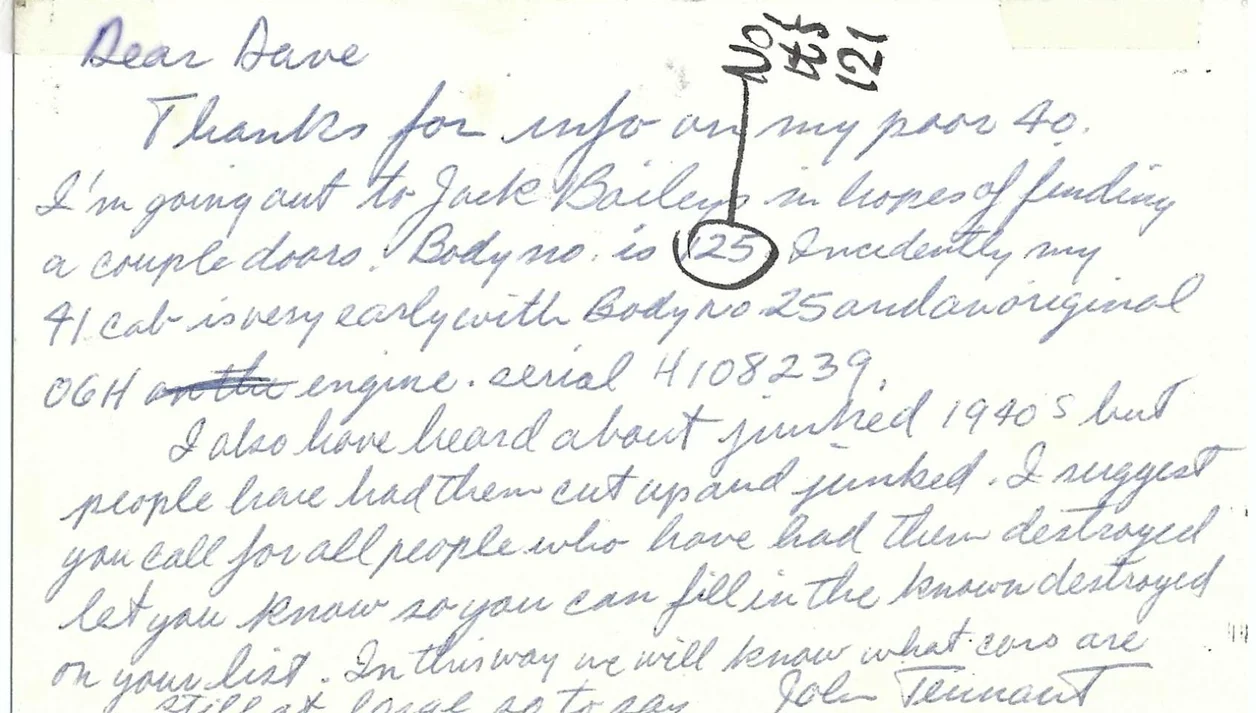 Dear Dave
No
it's
121
Thanks for info on my poor 40.
I'm going out to Jack Baileys in hopes of finding
a couple doors. Body no. is 125. Incidently my
41 cab is very early with Body no 25 and an original
06H on the engine. serial H108239.
I also have heard about junked 1940s but
people have had them cut up and junked. I suggest
you call for all people who have had them destroyed
let you know so you can fill in the known destroyed
on your list. In this way we will know what cars are
still at large so to say John Tennant